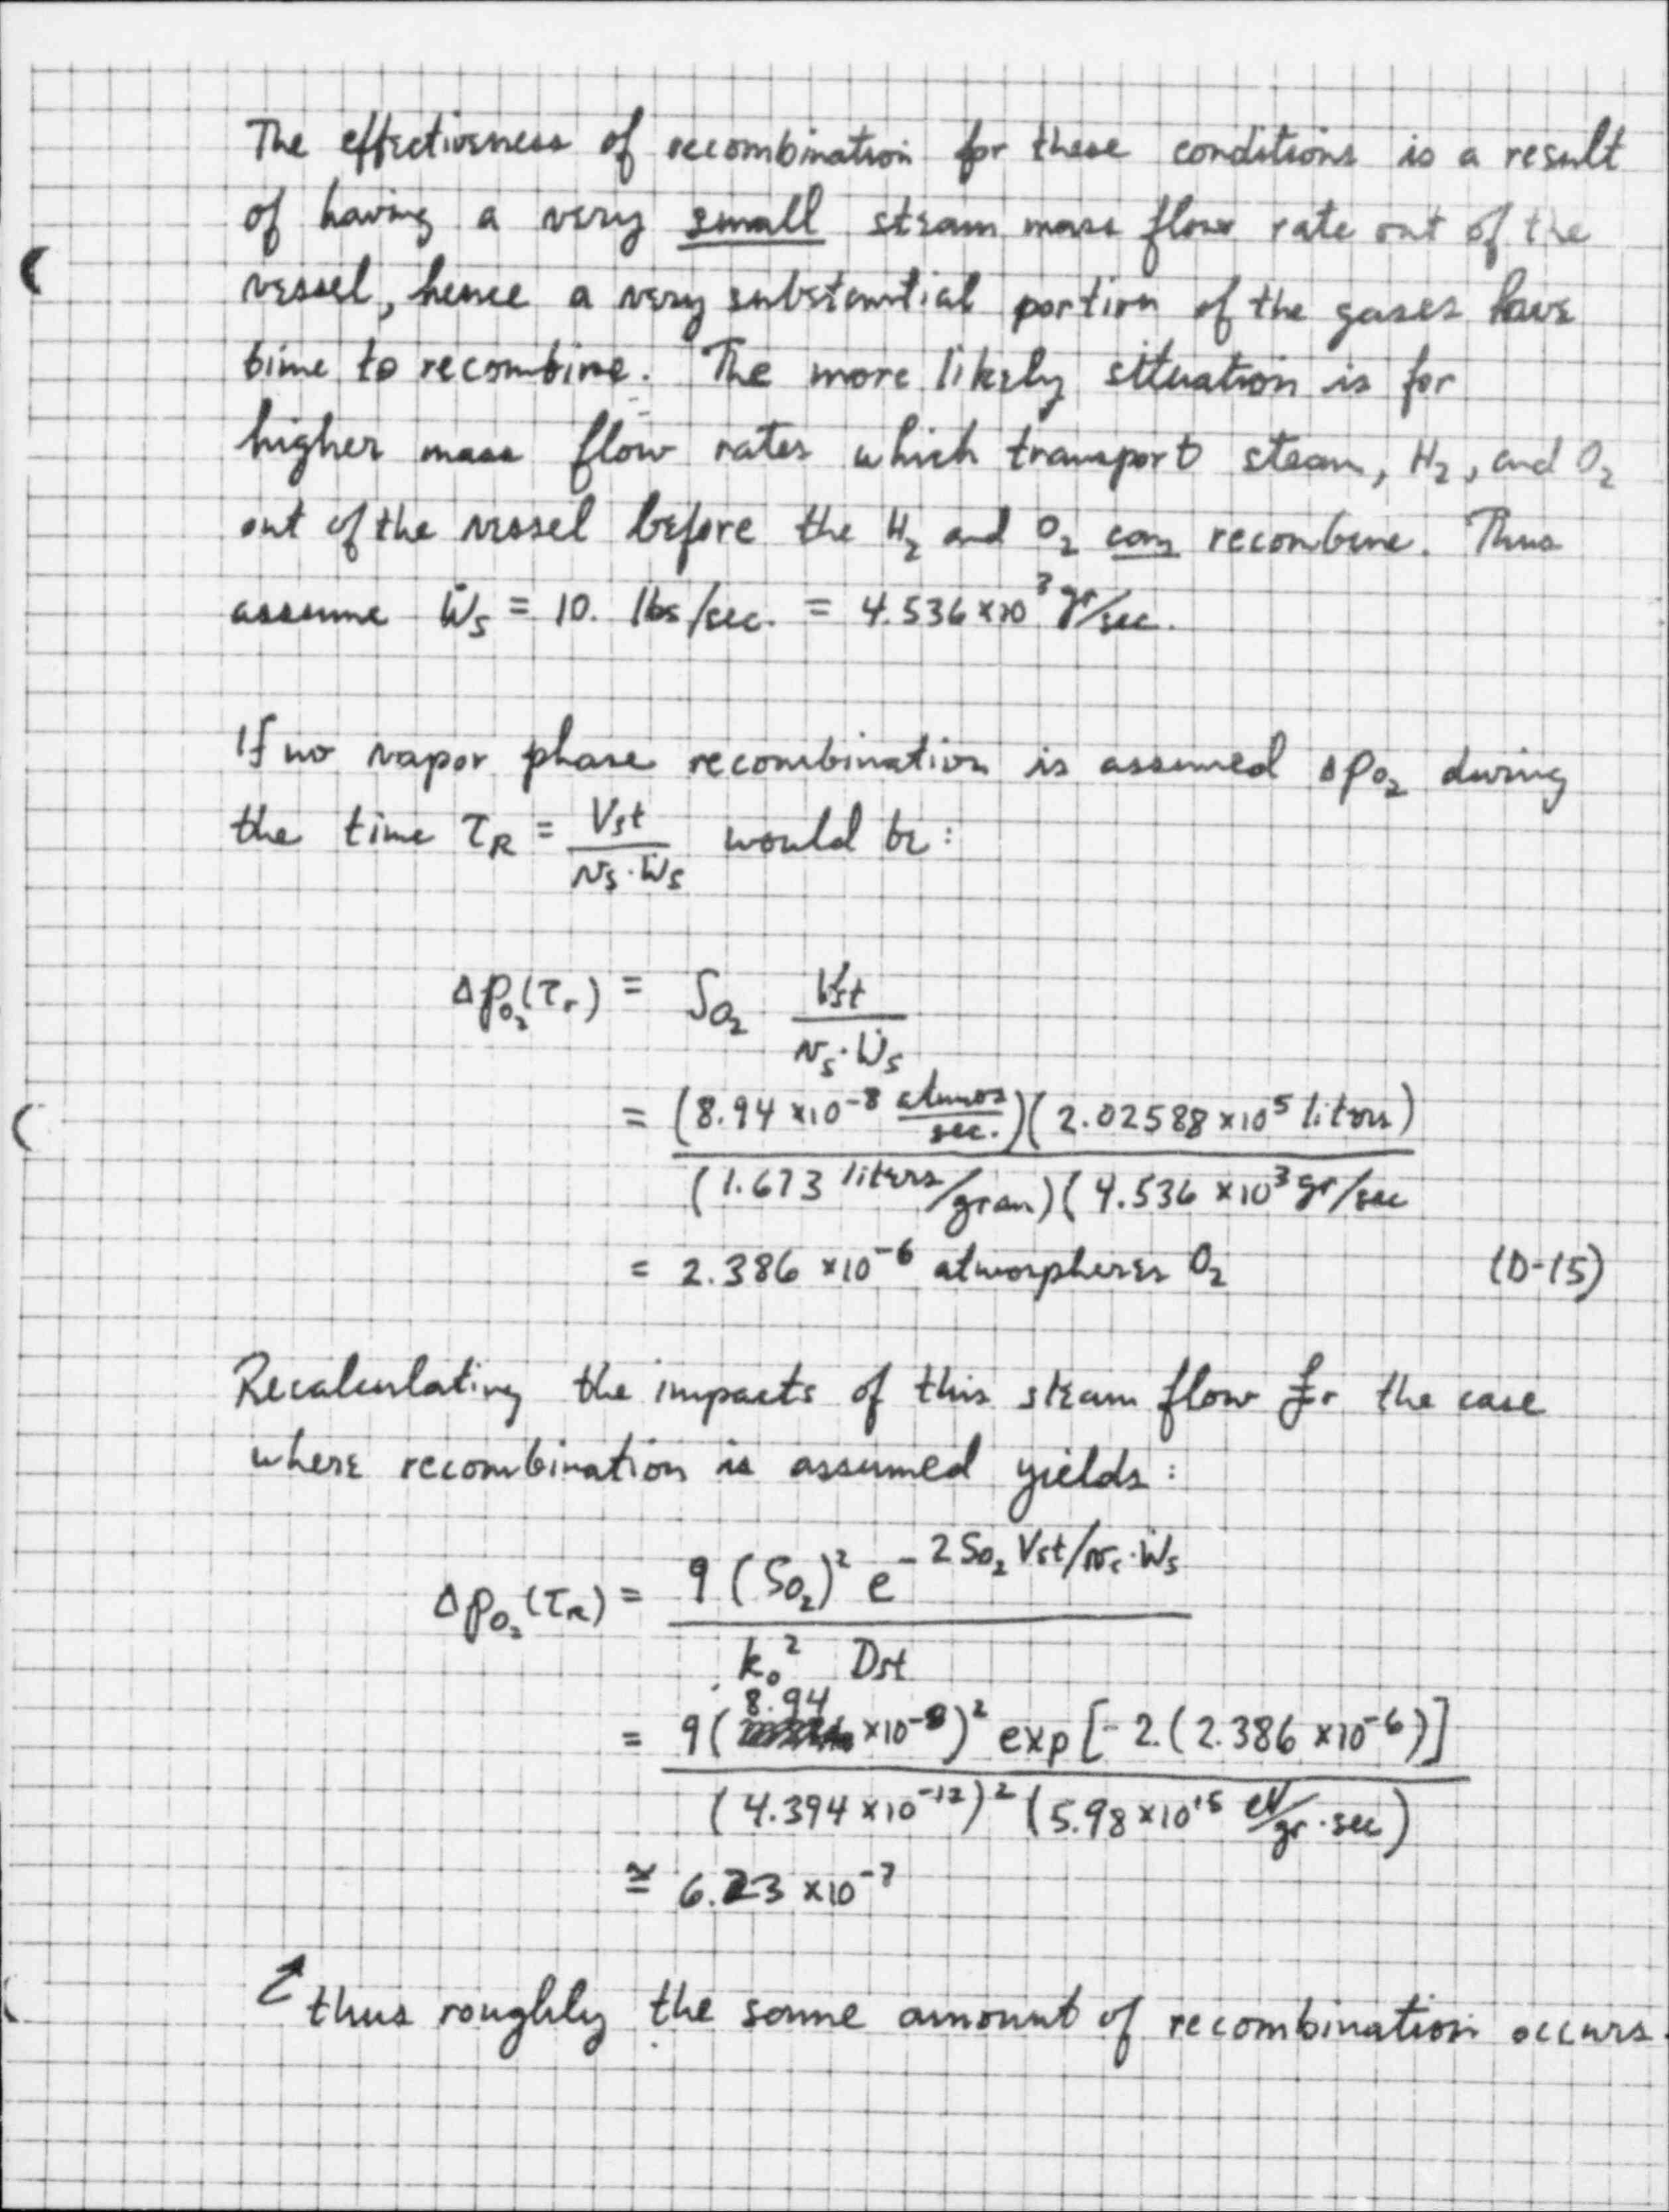 The effectiveness of recombination for these conditions is a result
of having a very small steam mass flow rate out of the
vessel, hence a very substantial portion of the gases have
time to recombine. The more likely situation is for
higher mass flow rates which transport steam, H₂, and O₂
out of the vessel before the H₂ and O₂ can recombine. Thus
assume Ẇs = 10. lbs/sec. = 4.536 x10³ gr/sec.
If no vapor phase recombination is assumed Δpo₂ during
the time τR = Vst / vs·Ẇs would be:
Δpo₂(τr) = So₂ Vst / vs·Ẇs
= (8.94 x10⁻⁸ atmos/sec.)(2.02588 x10⁵ liters) / (1.673 liters/gram)(4.536 x10³ gr/sec
= 2.386 x10⁻⁶ atmospheres O₂ (D-15)
Recalculating the impacts of this steam flow for the case
where recombination is assumed yields:
Δpo₂(τR) = 9 (So₂)² e^-2So₂Vst/vs·Ẇs / k₀² Dst
= 9(8.94 x10⁻⁸)² exp[-2.(2.386 x10⁻⁶)] / (4.394 x10⁻¹²)² (5.98 x10¹⁵ eV/gr·sec)
≅ 6.23 x10⁻⁷
thus roughly the same amount of recombination occurs.